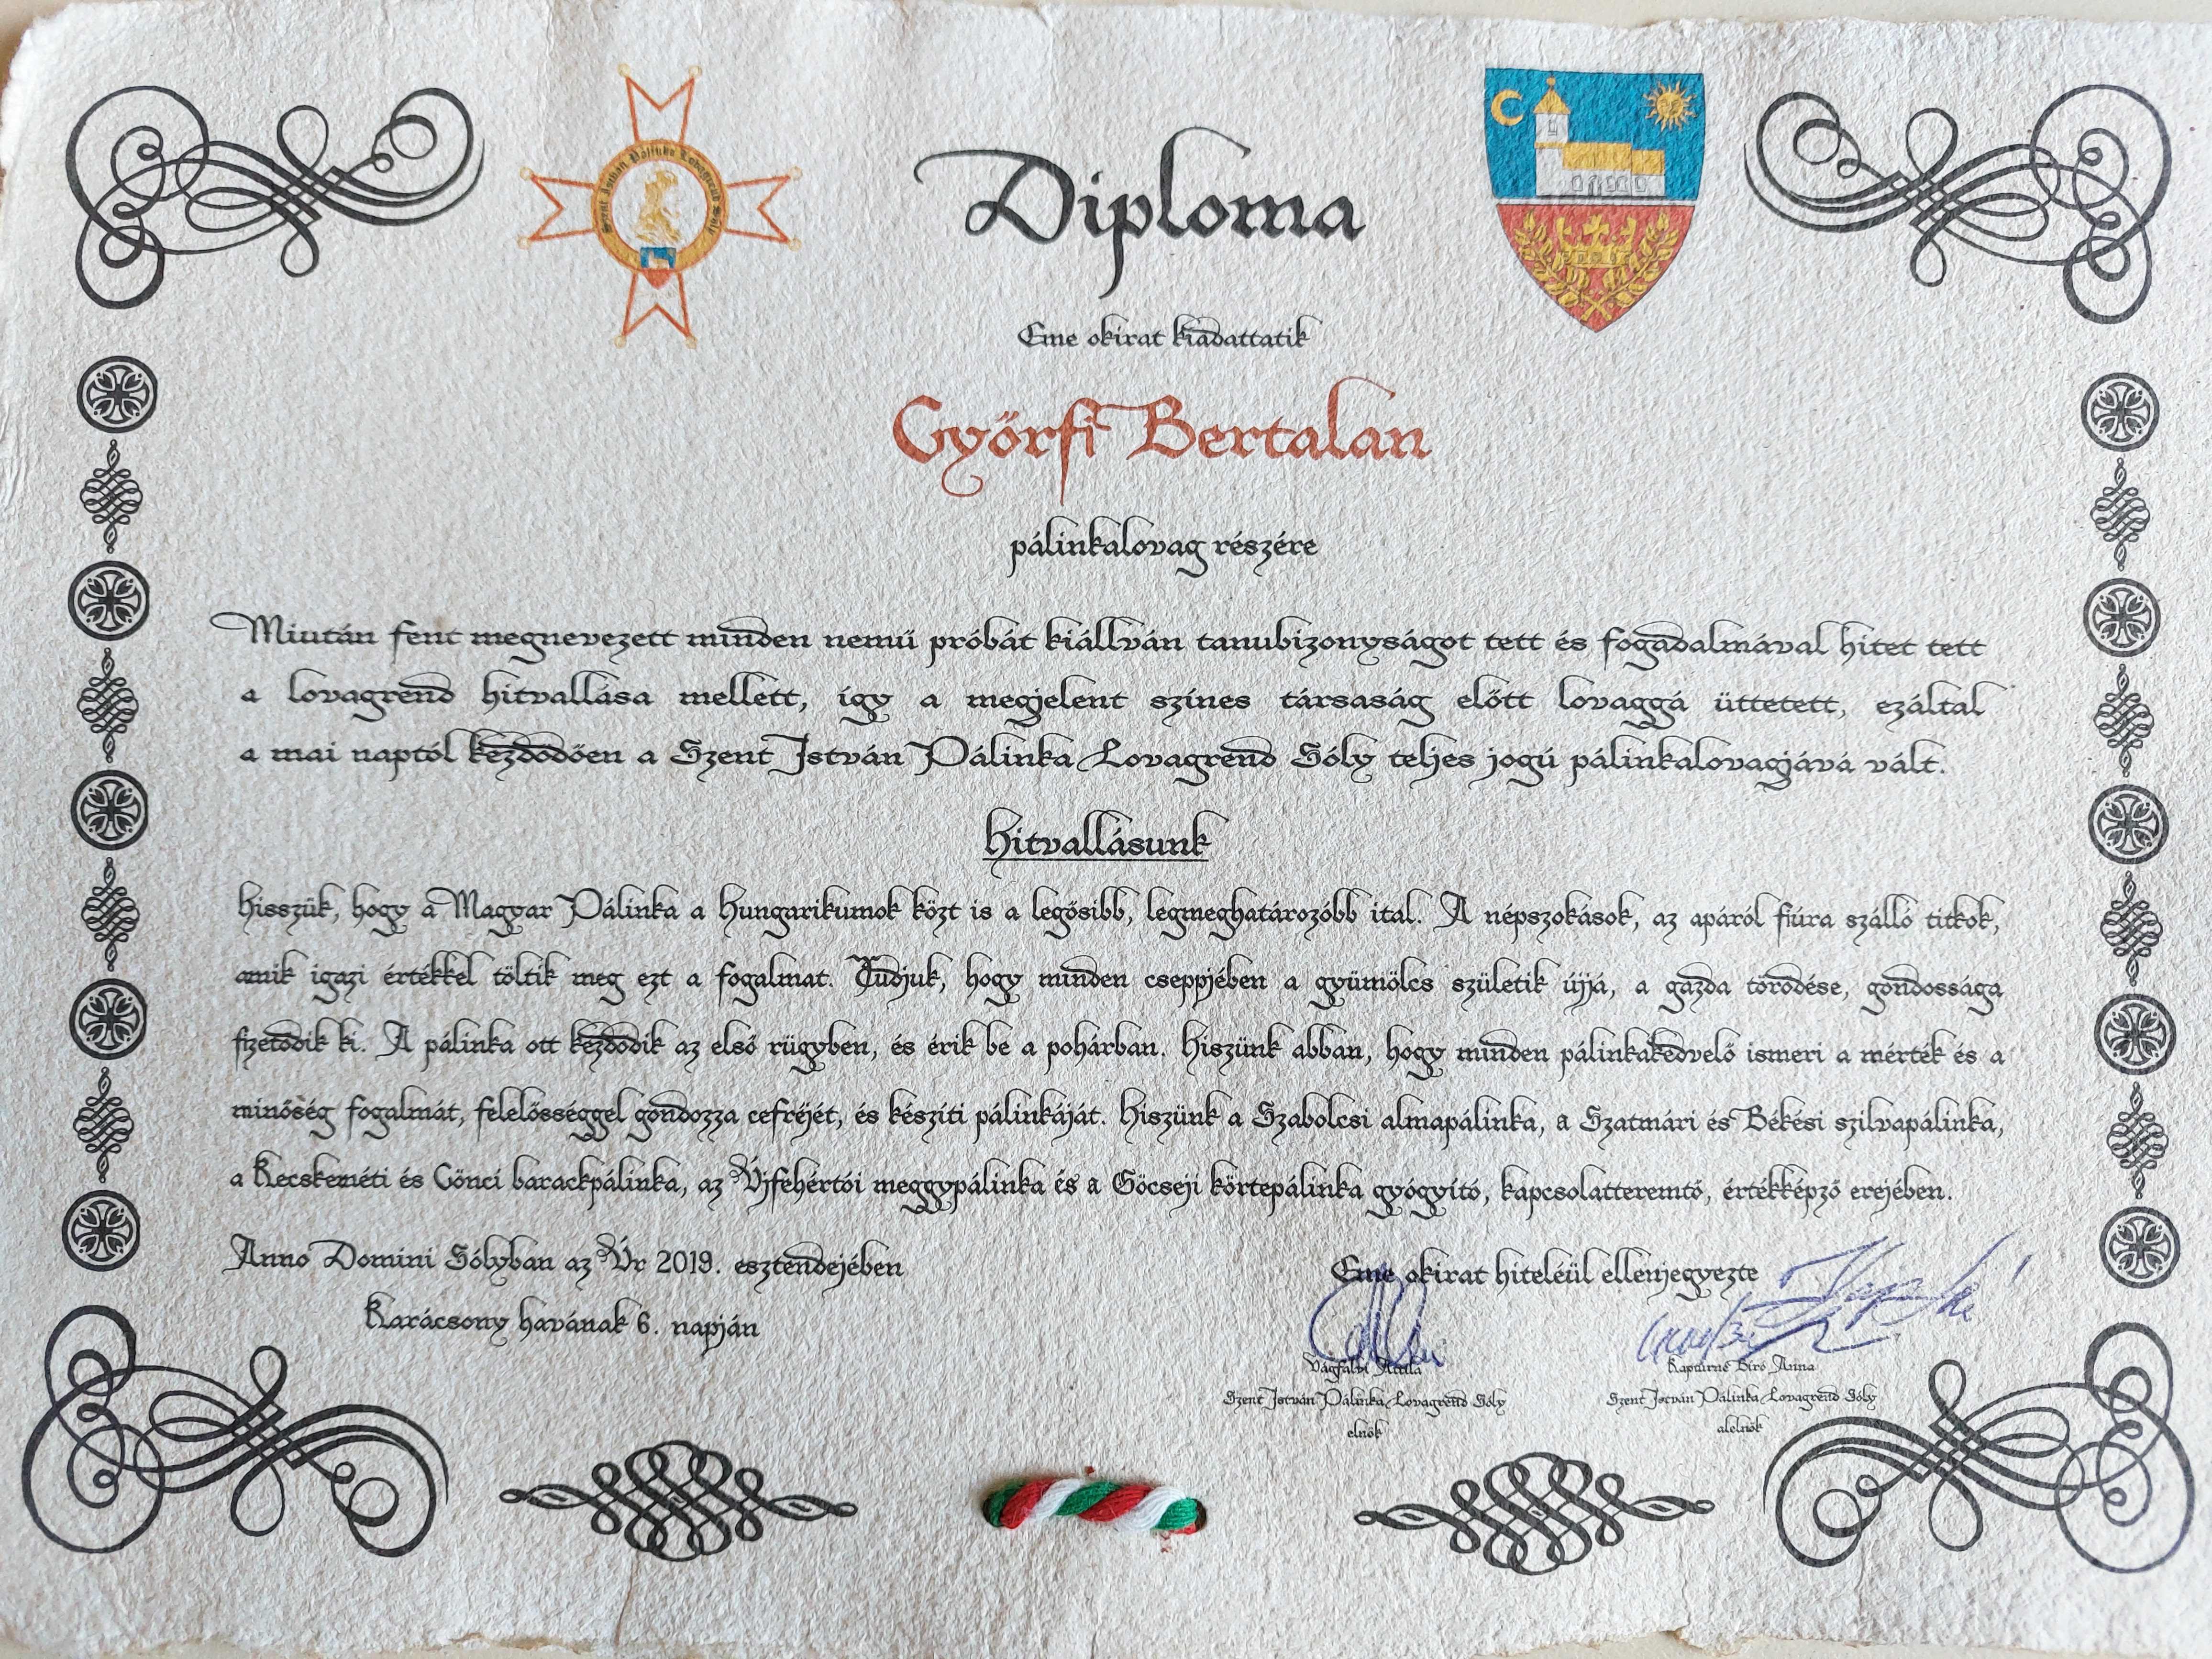 Szent István Pálinka Lovagrend Sóly
Diploma
Eme okirat kiadattatik
Győrfi Bertalan
pálinkalovag részére
Miután fent megnevezett minden nemű próbát kiállván tanubizonyságot tett és fogadalmával hitet tett
a lovagrend hitvallása mellett, így a megjelent színes társaság előtt lovaggá üttetett, ezáltal
a mai naptól kezdődően a Szent István Pálinka Lovagrend Sóly teljes jogú pálinkalovagjává vált.
Hitvallásunk
Hisszük, hogy a Magyar Pálinka a Hungarikumok közt is a legősibb, legmeghatározóbb ital. A népszokások, az apáról fiúra szálló titkok,
amik igazi értékkel töltik meg ezt a fogalmat. Tudjuk, hogy minden cseppjében a gyümölcs születik újjá, a gazda törődése, gondossága
fizetődik ki. A pálinka ott kezdődik az első rügyben, és érik be a pohárban. Hiszünk abban, hogy minden pálinkakedvelő ismeri a mérték és a
minőség fogalmát, felelősséggel gondozza cefréjét, és készíti pálinkáját. Hiszünk a Szabolcsi almapálinka, a Szatmári és Békési szilvapálinka,
a Kecskeméti és Gönci barackpálinka, az Újfehértói meggypálinka és a Göcseji körtepálinka gyógyító, kapcsolatteremtő, értékképző erejében.
Anno Domini Sólyban az Úr 2019. esztendejében
Karácsony havának 6. napján
Eme okirat hiteléül ellenjegyezte
Vágfalvi Attila
Szent István Pálinka Lovagrend Sóly
elnök
Kapturné Bíró Anna
Szent István Pálinka Lovagrend Sóly
alelnök